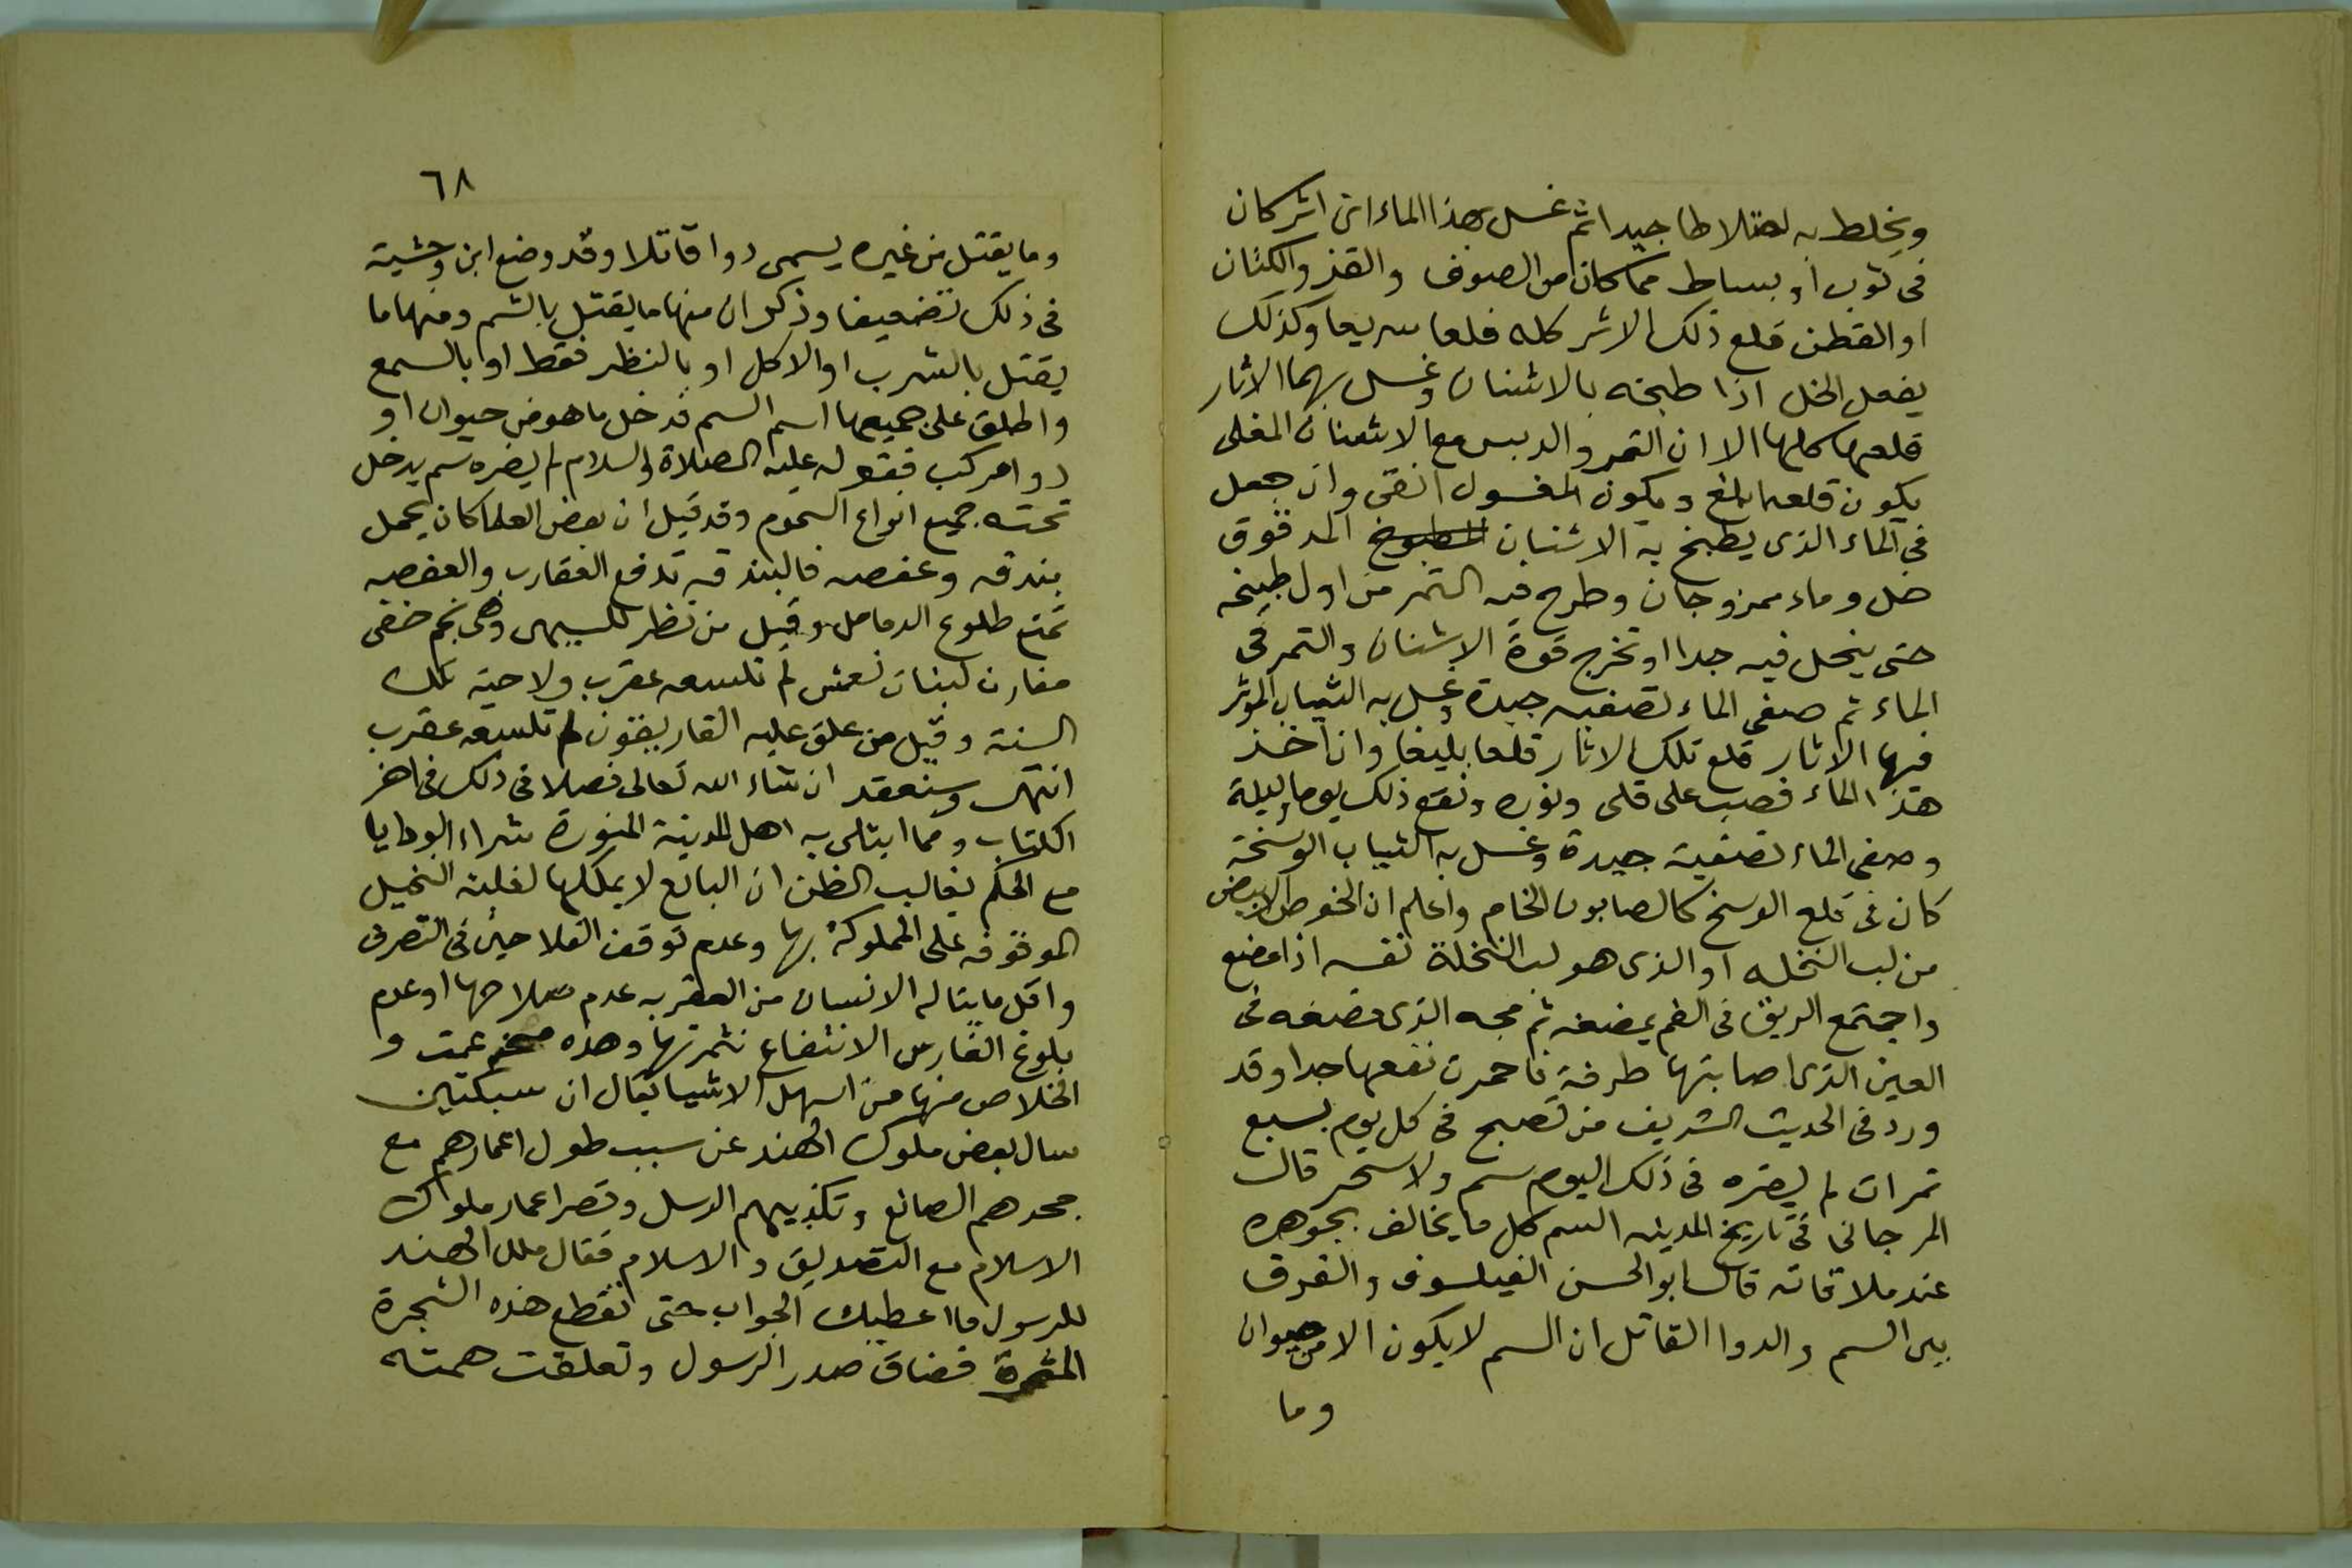 ويخلط به اختلاطا جيدا ثم غسل بهذا الماء اى اثر كان
فى ثوب او بساط مما كان من الصوف والقز والكتان
او القطن قلع ذلك الاثر كله قلعا سريعا وكذلك
يفعل الخل اذا طبخه بالاشنان وغسل بهما الاثار
قلعها كلها الا ان التمر والدبس مع الاشنان المغلى
يكون قلعه ابلغ ويكون المغسول انقى وان جعل
فى الماء الذى يطبخ به الاشنان المدقوق
خل وماء ممزوجان وطرح فيه التمر من اول طبخه
حتى ينحل فيه جدا او تخرج قوة الاشنان والتمر فى
الماء ثم صفى الماء تصفية جيدة وغسل به الثياب الموثر
فيها الاثار قلع تلك الاثار قلعا بليغا وان اخذ
هذا الماء فصب على قلى ونوره ونقع ذلك يوما وليلة
وصفى الماء تصفية جيدة وغسل به الثياب الوسخة
كان فى قلع الوسخ كالصابون الخام واعلم ان الخوص الابيض
من لب النخله او الذى هو لب النخلة نفسه اذا مضغ
واجتمع الريق فى الفم بمضغه ثم مجه الذى مضغه فى
العين الذى اصابتها طرفة فاحمرت نفعها جدا وقد
ورد فى الحديث الشريف من تصبح فى كل يوم بسبع
تمرات لم يضره فى ذلك اليوم سم ولا سحر قال
المرجانى فى تاريخ المدينه السم كل ما يخالف بجوهره
عند ملاقاته قال ابو الحسن الفيلسوف والفرق
بين السم والدوا القاتل ان السم لا يكون الا من حيوان
وما
٦٨
وما يقتل من غيره يسمى دوا قاتلا وقد وضع ابن وحشية
فى ذلك تضعيفا وذكر ان منها ما يقتل بالشم ومنها ما
يقتل بالشرب او الاكل او بالنظر فقط او بالسمع
واطلق على جميعها اسم السم فدخل ما هو من حيوان او
دوا مركب فقوله عليه الصلاة والسلام لم يضره سم يدخل
تحته جميع انواع السموم وقد قيل ان بعض العلما كان يحمل
بندقه وعفصه فالبندقه تدفع العقارب والعفصه
تمنع طلوع الدمامل وقيل من نظر للسهى وهى نجم خفى
مقارن لبنات نعش لم تلسعه عقرب ولا حية تلك
السنة وقيل من علق عليه الغاريقون لم تلسعه عقرب
انتهى وسنعقد ان شاء الله تعالى فصلا فى ذلك فى اخر
الكتاب ومما ابتلى به اهل المدينة المنورة شراء الودايا
مع الحكم بغالب الظن ان البائع لا يملكها لغلبة النخيل
الموقوفه على المملوكة بها وعدم توقف الفلاحين فى التصرف
واقل ما يناله الانسان من العقوبه عدم صلاحها او عدم
بلوغ الغارس الانتفاع بثمرتها وهذه عمت و
الخلاص منها من اسهل الاشيا يقال ان سبكتين
سال بعض ملوك الهند عن سبب طول اعمارهم مع
جحدهم الصانع وتكذيبهم الرسل وقصر اعمار ملوك
الاسلام مع التصديق والاسلام فقال ملك الهند
للرسول ما اعطيك الجواب حتى تقطع هذه الشجرة
المثمرة فضاق صدر الرسول وتعلقت همته